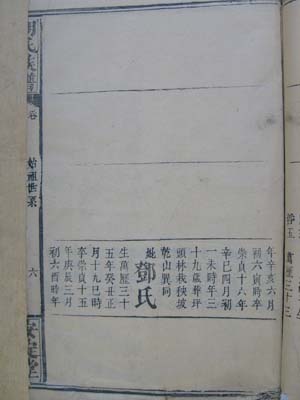 年辛亥六月
初六寅時卒
崇貞十六年
辛巳四月初
一未時年三
十九歲葬坪
頭林栽秧坡
乾山巽向
妣鄧氏
生萬歷三十
五年癸丑正
月十九巳時
卒崇貞十五
年庚辰三月
初六酉時年
氏族譜
卷
始祖世系
六
安定堂